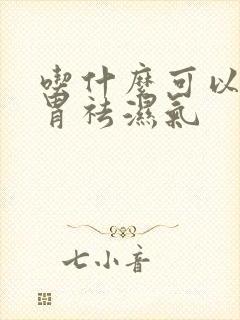 喫什麼可以
胃祛濕氣
七小音